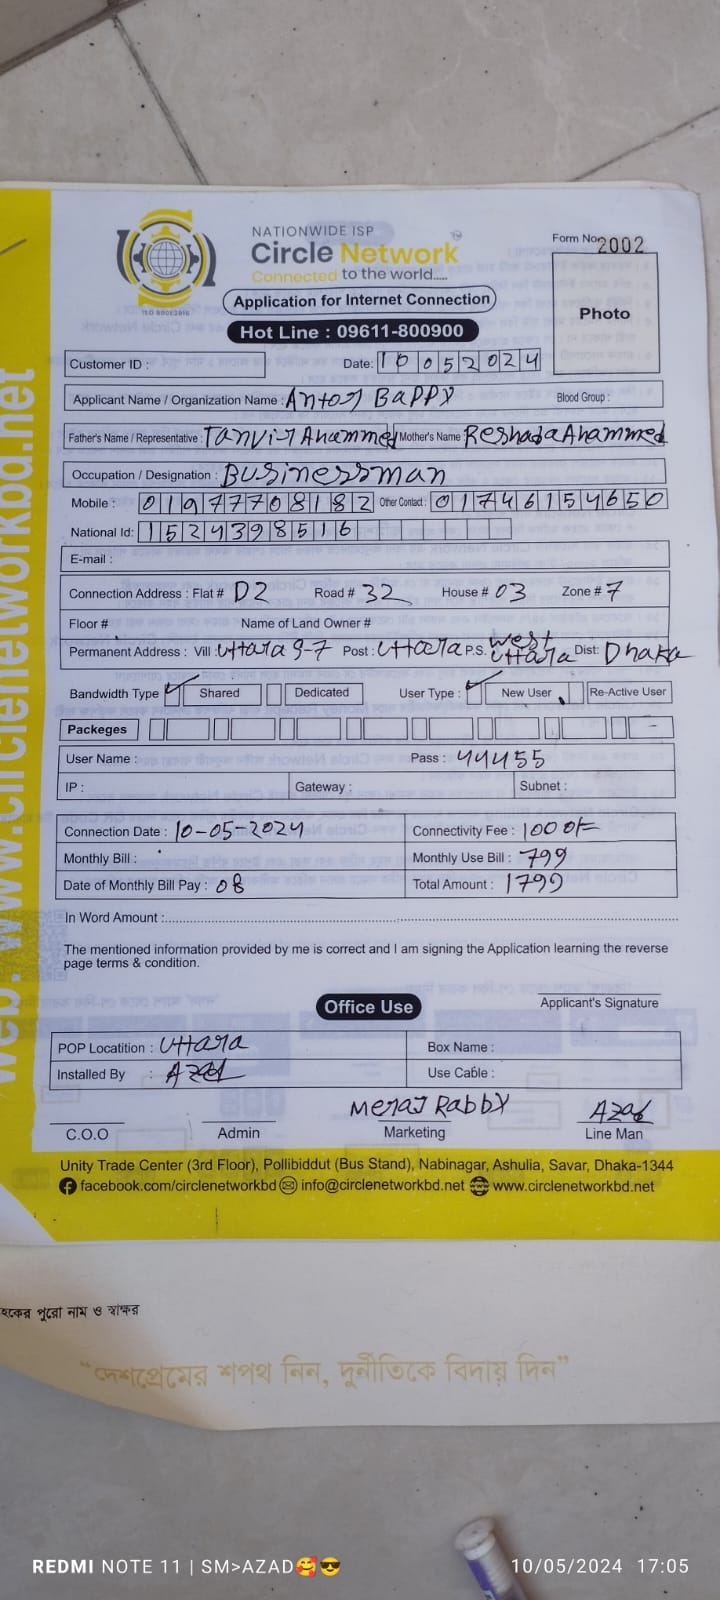 NATIONWIDE ISP
Circle Network™
Connected to the world.....
ISO 9001:2015
Form No. 2002
Application for Internet Connection
Photo
Hot Line : 09611-800900
Customer ID :
Date: 10052024
Applicant Name / Organization Name : Antor BaPPY
Blood Group :
Father's Name / Representative : Tanvir Ahammed Mother's Name Reshada Ahammed
Occupation / Designation : Businessman
Mobile : 01977708182 Other Contact : 01746154650
National Id: 1524398516
E-mail :
Connection Address : Flat # D2 Road # 32 House # 03 Zone # 7
Floor # Name of Land Owner #
Permanent Address : Vill : Uttara S-7 Post : Uttara P.S. West Uttara Dist: Dhaka
Bandwidth Type ✓ Shared Dedicated User Type : ✓ New User Re-Active User
Packeges
User Name : Pass : 44455
IP : Gateway : Subnet :
Connection Date : 10-05-2024 Connectivity Fee : 1000/=
Monthly Bill : Monthly Use Bill : 799
Date of Monthly Bill Pay : 08 Total Amount : 1799
In Word Amount :
The mentioned information provided by me is correct and I am signing the Application learning the reverse
page terms & condition.
Office Use
Applicant's Signature
POP Locatition : Uttara Box Name :
Installed By : Azad Use Cable :
Meraj Rabby Azad
C.O.O Admin Marketing Line Man
Unity Trade Center (3rd Floor), Pollibiddut (Bus Stand), Nabinagar, Ashulia, Savar, Dhaka-1344
facebook.com/circlenetworkbd info@circlenetworkbd.net www.circlenetworkbd.net
web: www.circlenetworkbd.net
হকের পুরো নাম ও স্বাক্ষর
“দেশপ্রেমের শপথ নিন, দুর্নীতিকে বিদায় দিন”
REDMI NOTE 11 | SM>AZAD🥰😎
10/05/2024 17:05